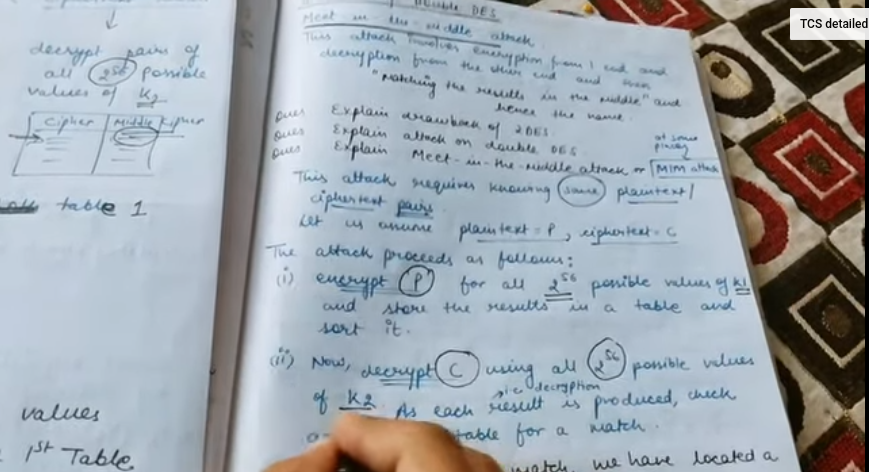 decrypt pairs of
all 2^56 possible
values of K2
Cipher Middle Cipher
table 1
values
1st Table
Double DES
Meet-in-the-middle attack
This attack involves encryption from 1 end and
decryption from the other end and then
"matching the results in the middle" and
hence the name.
Ques Explain drawback of 2DES
Ques Explain attack on double DES.
Ques Explain Meet-in-the-middle attack or MIM attack
at some
places
This attack requires knowing some plaintext/
ciphertext pairs.
Let us assume plaintext = P, ciphertext = C
The attack proceeds as follows:
(i) encrypt P for all 2^56 possible values of K1
and store the results in a table and
sort it.
(ii) Now, decrypt C using all 2^56 possible values
i.e decryption
of K2. As each result is produced, check
table for a match.
match, we have located a
TCS detailed